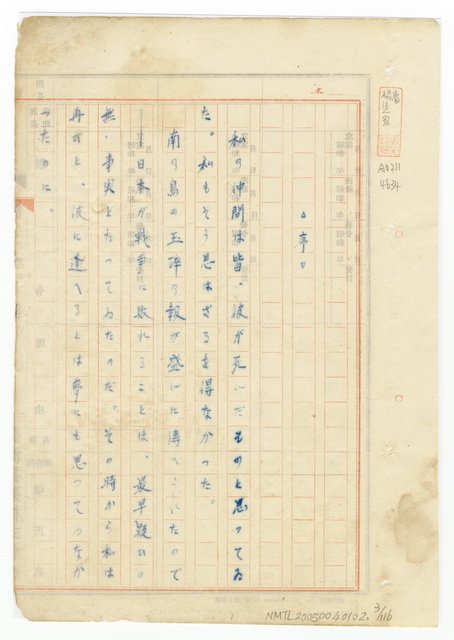 No.
序
私の仲間は皆、彼が死んだものと思ってゐ
た。私もそう思はざるを得なかった。
南の島の玉砕の報が盛んに傳へられたので
——日本が戦争に敗れることは、最早疑ひの
無い事実となってゐたのだ。その時から私は
再びと、彼に逢へるとは夢にも思ってゐなか
ったのに。
A0211
4634
NMTL20050040102, 3/116